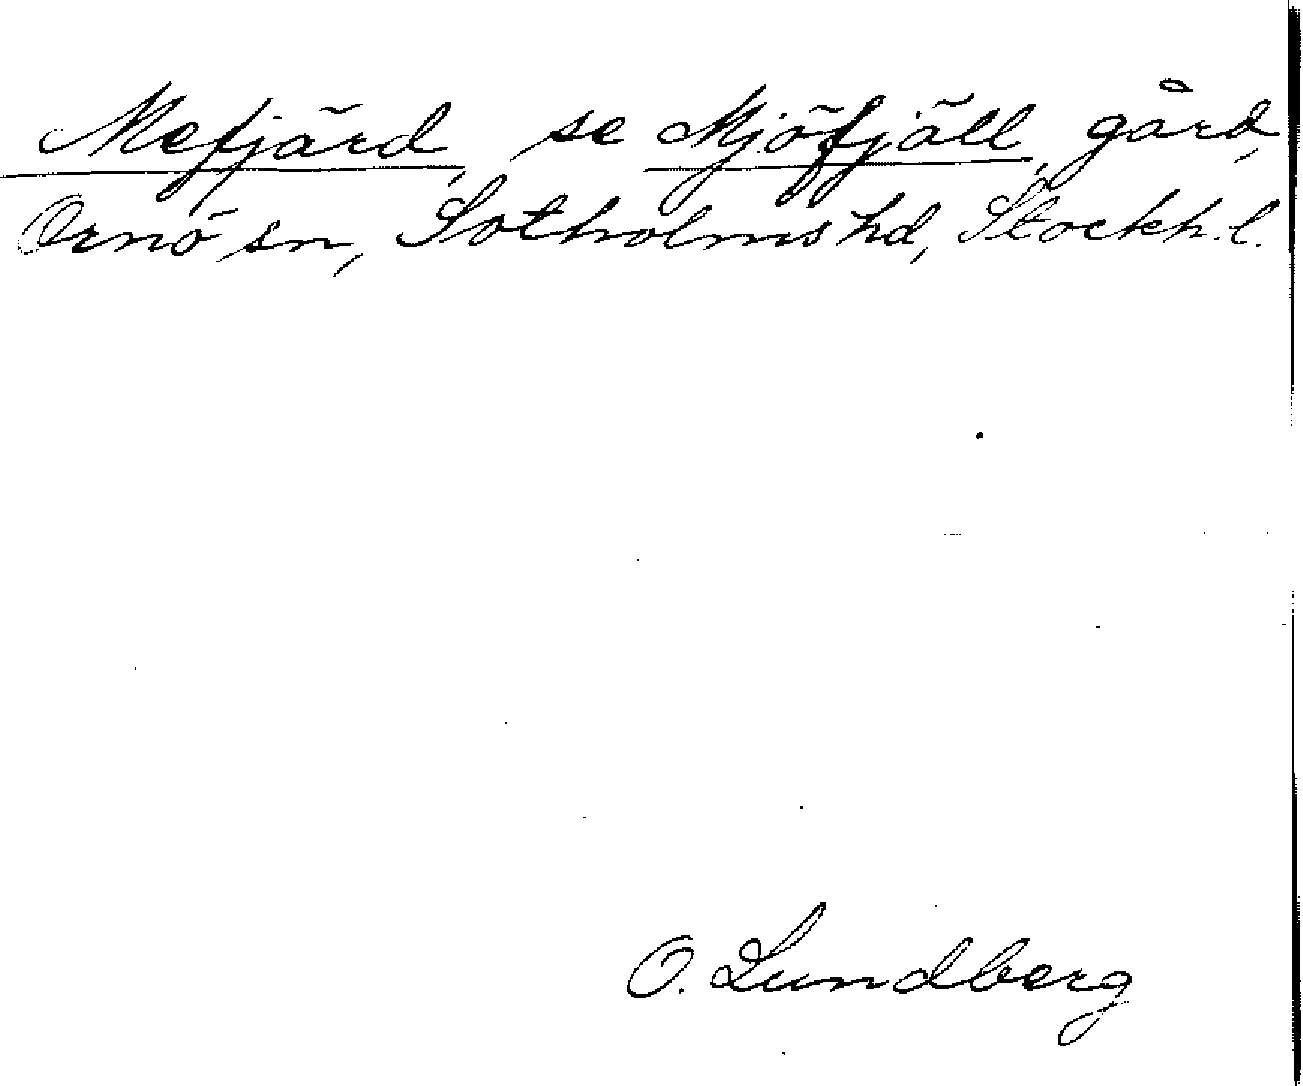 Mefjärd, se Mjöfjäll, gård,
Ornö sn, Sotholms hd, Stockh. l.
O. Lundberg